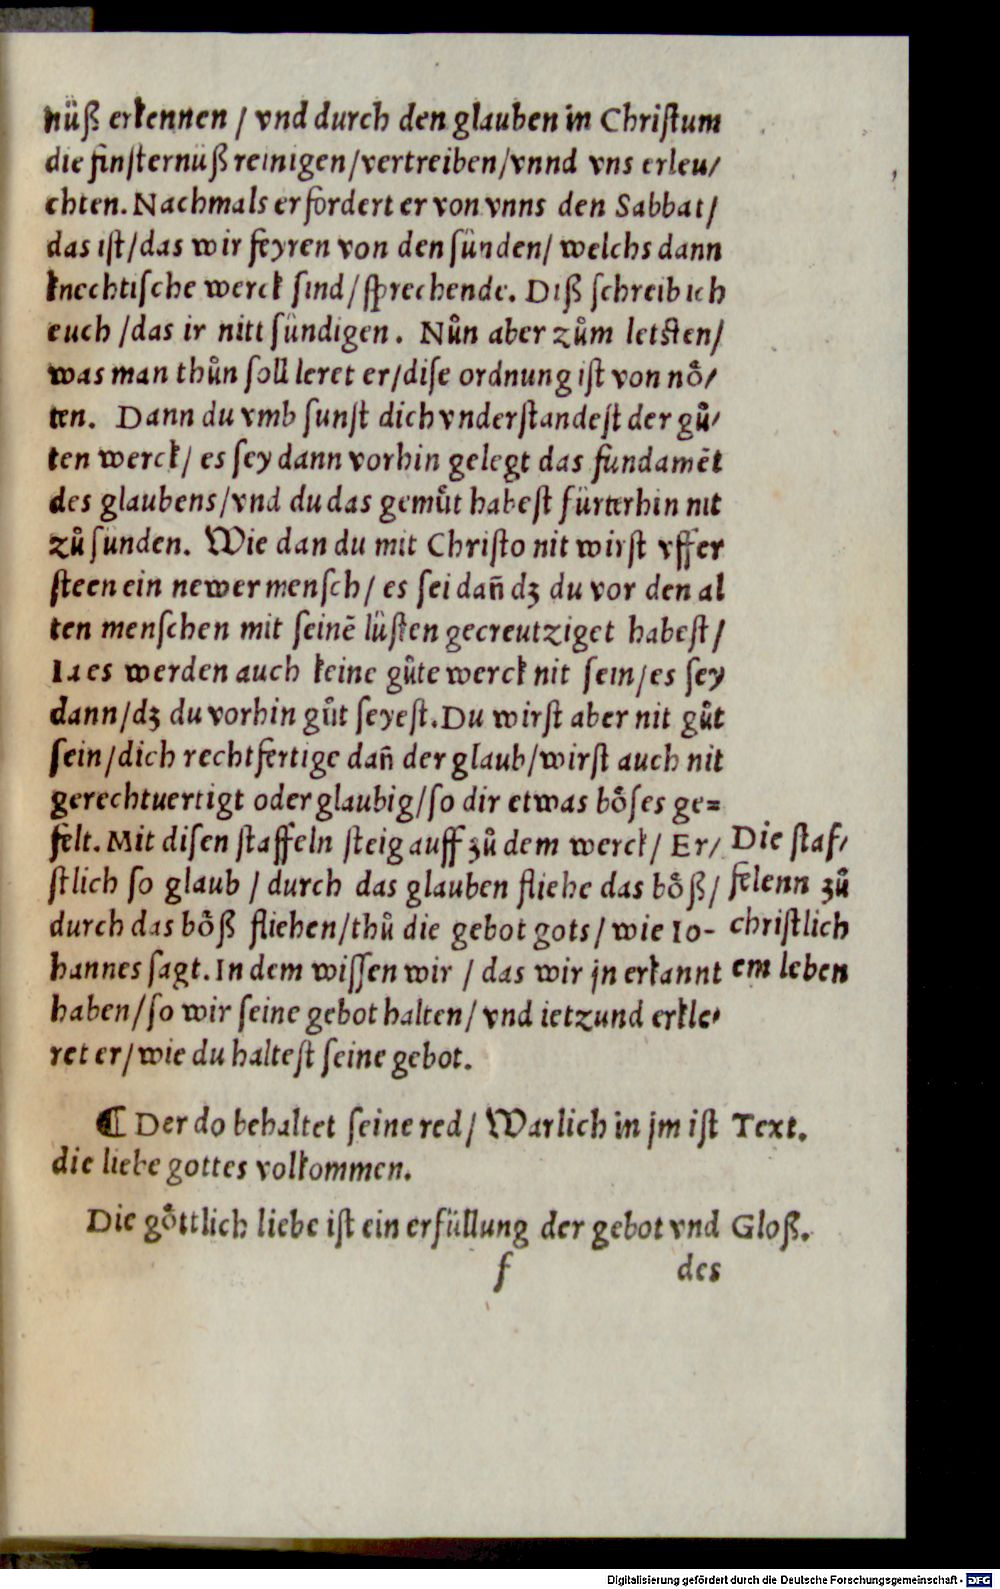 nüß erkennen / vnd durch den glauben in Chriſtum
die finſternüß reinigen/vertreiben/vnnd vns erleu/
chten. Nachmals erfordert er von vnns den Sabbat/
das iſt/das wir feyren von den ſünden/ welchs dann
knechtiſche werck ſind/ſprechende. Diß ſchreib ich
euch /das ir nitt ſündigen. Nůn aber zům letſten/
was man thůn ſoll leret er/diſe ordnung iſt von nö/
ten. Dann du vmb ſunſt dich vnderſtandeſt der gů/
ten werck/ es ſey dann vorhin gelegt das fundamēt
des glaubens/vnd du das gemůt habeſt fürterhin nit
zů ſünden. Wie dan du mit Chriſto nit wirſt vffer
ſteen ein newer menſch/ es ſei dañ dʒ du vor den al
ten menſchen mit ſeinē lüſten gecreutziget habeſt/
Ia es werden auch keine gůte werck nit ſein/es ſey
dann/dʒ du vorhin gůt ſeyeſt. Du wirſt aber nit gůt
ſein/dich rechtfertige dañ der glaub/wirſt auch nit
gerechtuertigt oder glaubig/ſo dir etwas böſes ge=
felt. Mit diſen ſtaffeln ſteig auff zů dem werck/ Er/
ſtlich ſo glaub / durch das glauben fliehe das böß/
durch das böß fliehen/thů die gebot gots/wie Io-
hannes ſagt. In dem wiſſen wir / das wir jn erkannt
haben/ſo wir ſeine gebot halten/ vnd ietzund erkle/
ret er/wie du halteſt ſeine gebot.
Die ſtaf/
felenn zů
chriſtlich
em leben
¶ Der do behaltet ſeine red/ Warlich in jm iſt
die liebe gottes volkommen.
Text.
Die göttlich liebe iſt ein erfüllung der gebot vnd
Gloß.
f
des
Digitalisierung gefördert durch die Deutsche Forschungsgemeinschaft - DFG